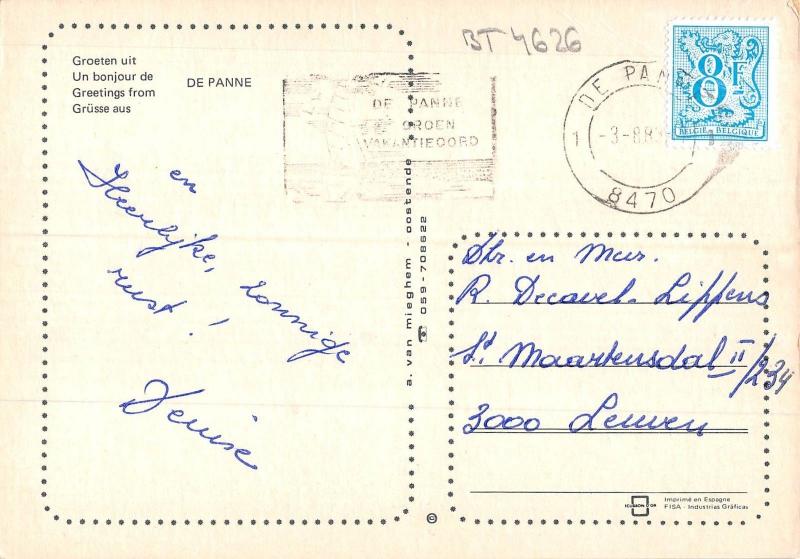 Groeten uit
Un bonjour de
Greetings from
Grüsse aus
DE PANNE
BT 4626
DE PANNE
GROEN
VAKANTIEOORD
DE PANNE
1 -3-8.83 1
8470
8F
BELGIË-BELGIQUE
en
Heerlijke, zonnige
rust!
Denise
a. van mieghem - oostende ☎ 059-708622
Dhr. en Mevr.
R. Decavel-Lippens
St Maartensdal II/234
3000 Leuven
©
ICUSSON D'OR
Imprimé en Espagne
FISA - Industrias Gráficas